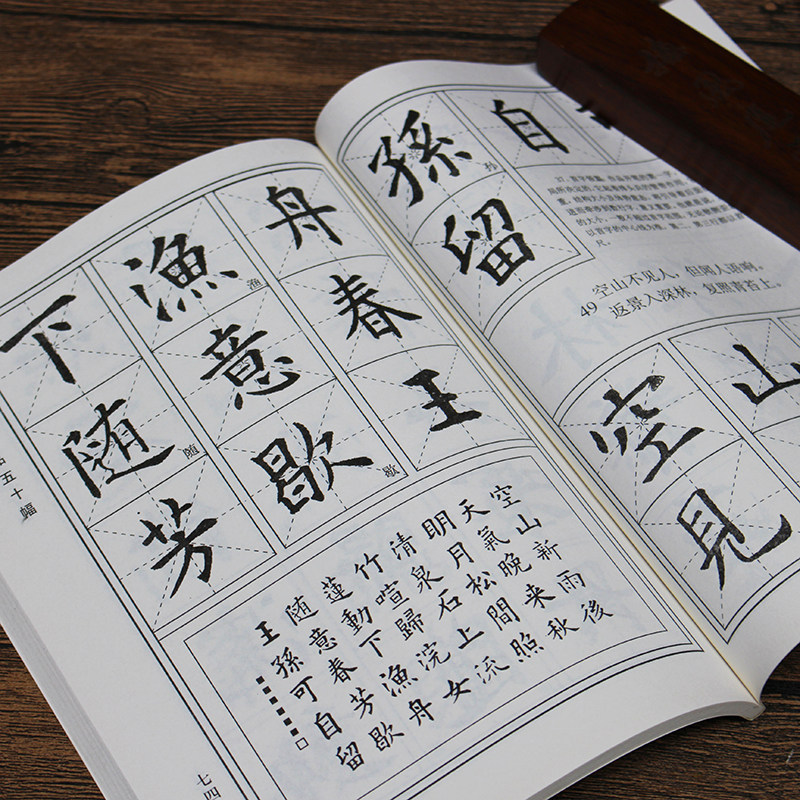 下漁舟
渔
随意春
随
芳歇王
歇
空山新雨後
天氣晚来秋
明月松間照
清泉石上流
竹喧歸浣女
蓮動下漁舟
随意春芳歇
王孫可自留
五十幅
七四
孫自
孙
留
49
空山不见人，但闻人语响。
返景入深林，复照青苔上。
空山
見